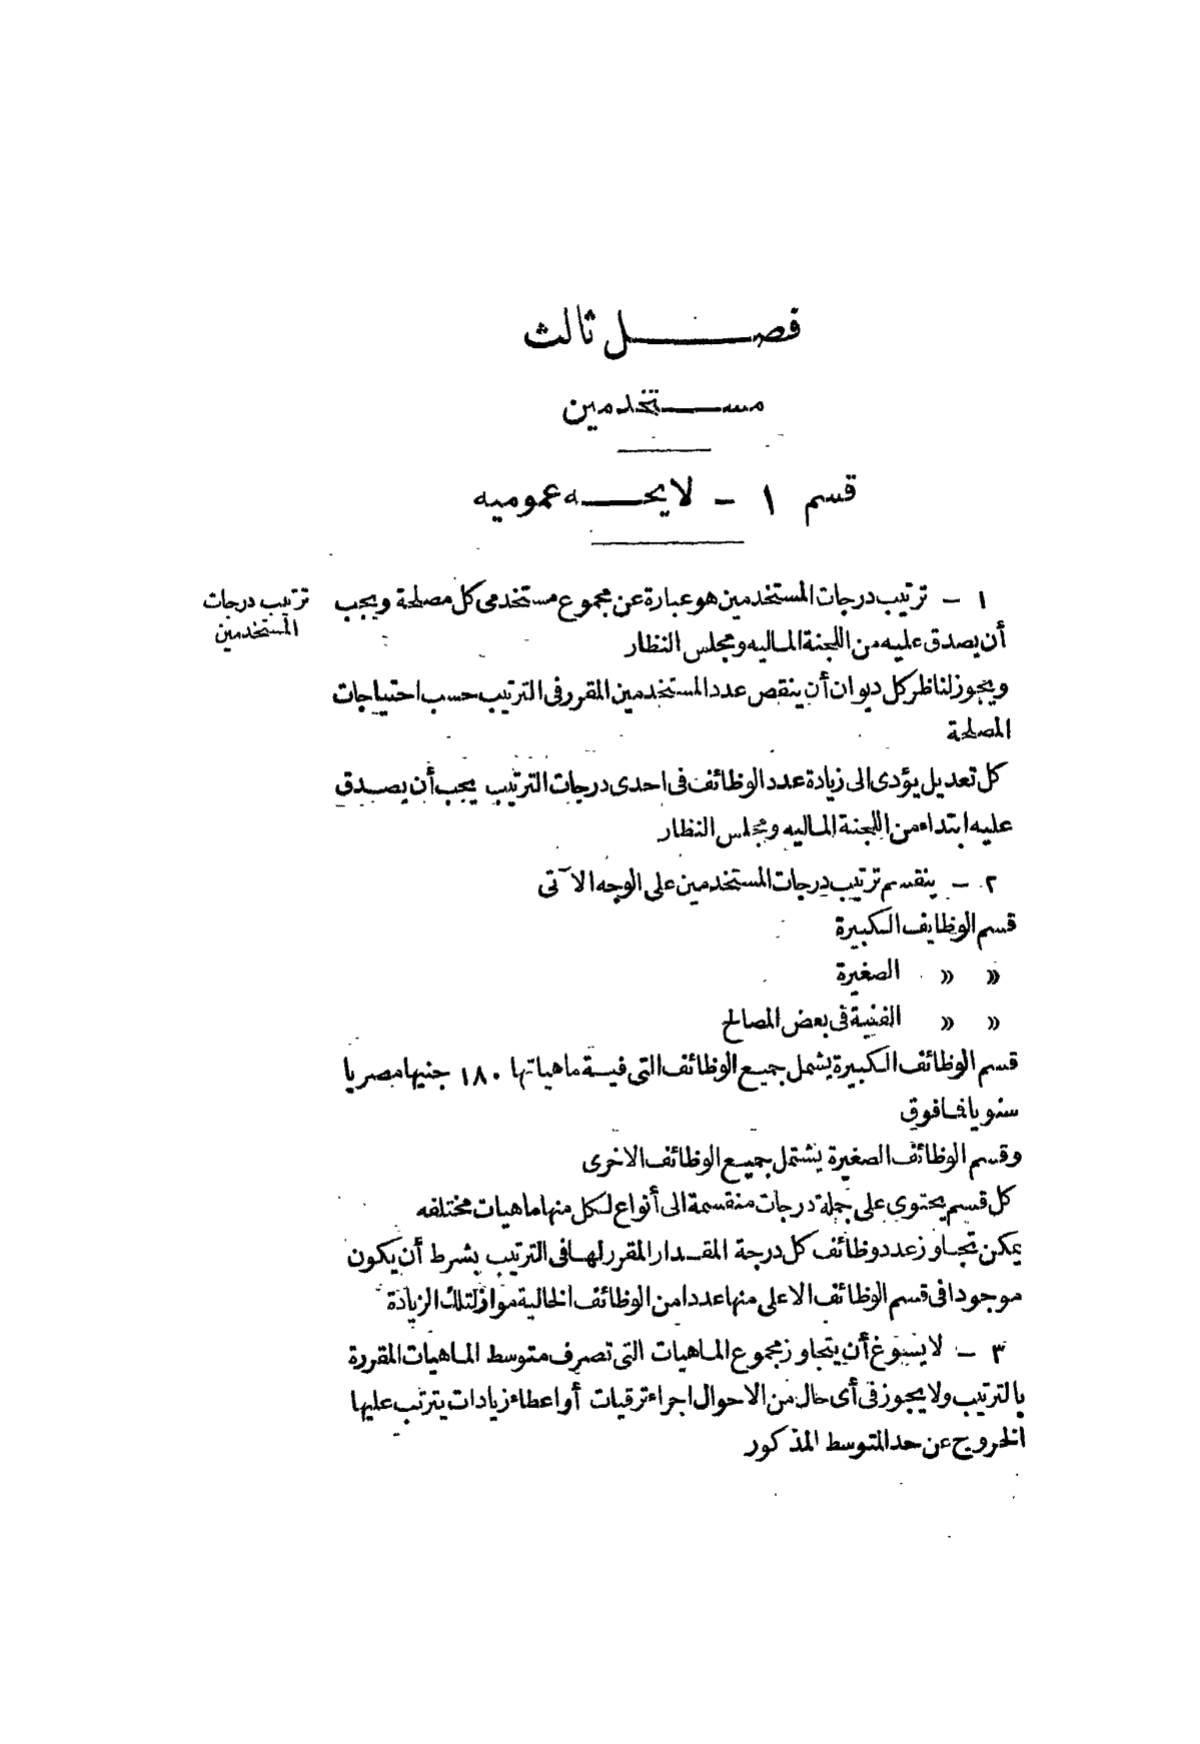 فصل ثالث
مستخدمين
قسم ١ - لايحه عموميه
١ - ترتيب درجات المستخدمين هو عبارة عن مجموع مستخدمى كل مصلحة ويجب
ترتيب درجات
المستخدمين
أن يصدق عليه من اللجنة الماليه ومجلس النظار
ويجوز لناظر كل ديوان أن ينقص عدد المستخدمين المقرر فى الترتيب حسب احتياجات
المصلحة
كل تعديل يؤدى الى زيادة عدد الوظائف فى احدى درجات الترتيب يجب أن يصدق
عليه ابتداء من اللجنة الماليه ومجلس النظار
٢ - ينقسم ترتيب درجات المستخدمين على الوجه الآتى
قسم الوظايف الكبيرة
» » الصغيرة
» » الفنية فى بعض المصالح
قسم الوظائف الكبيرة يشمل جميع الوظائف التى قيمة ماهياتها ١٨٠ جنيها مصريا
سنويا فما فوق
وقسم الوظائف الصغيرة يشتمل جميع الوظائف الاخرى
كل قسم يحتوى على جملة درجات منقسمة الى أنواع لكل منها ماهيات مختلفه
يمكن تجاوز عدد وظائف كل درجة المقدار المقرر لها فى الترتيب بشرط أن يكون
موجودا فى قسم الوظائف الاعلى منها عددا من الوظائف الخالية مواز لتلك الزيادة
٣ - لا يسوغ أن يتجاوز مجموع الماهيات التى تصرف متوسط الماهيات المقررة
بالترتيب ولا يجوز فى أى حال من الاحوال اجراء ترقيات أو اعطاء زيادات يترتب عليها
الخروج عن حد المتوسط المذكور